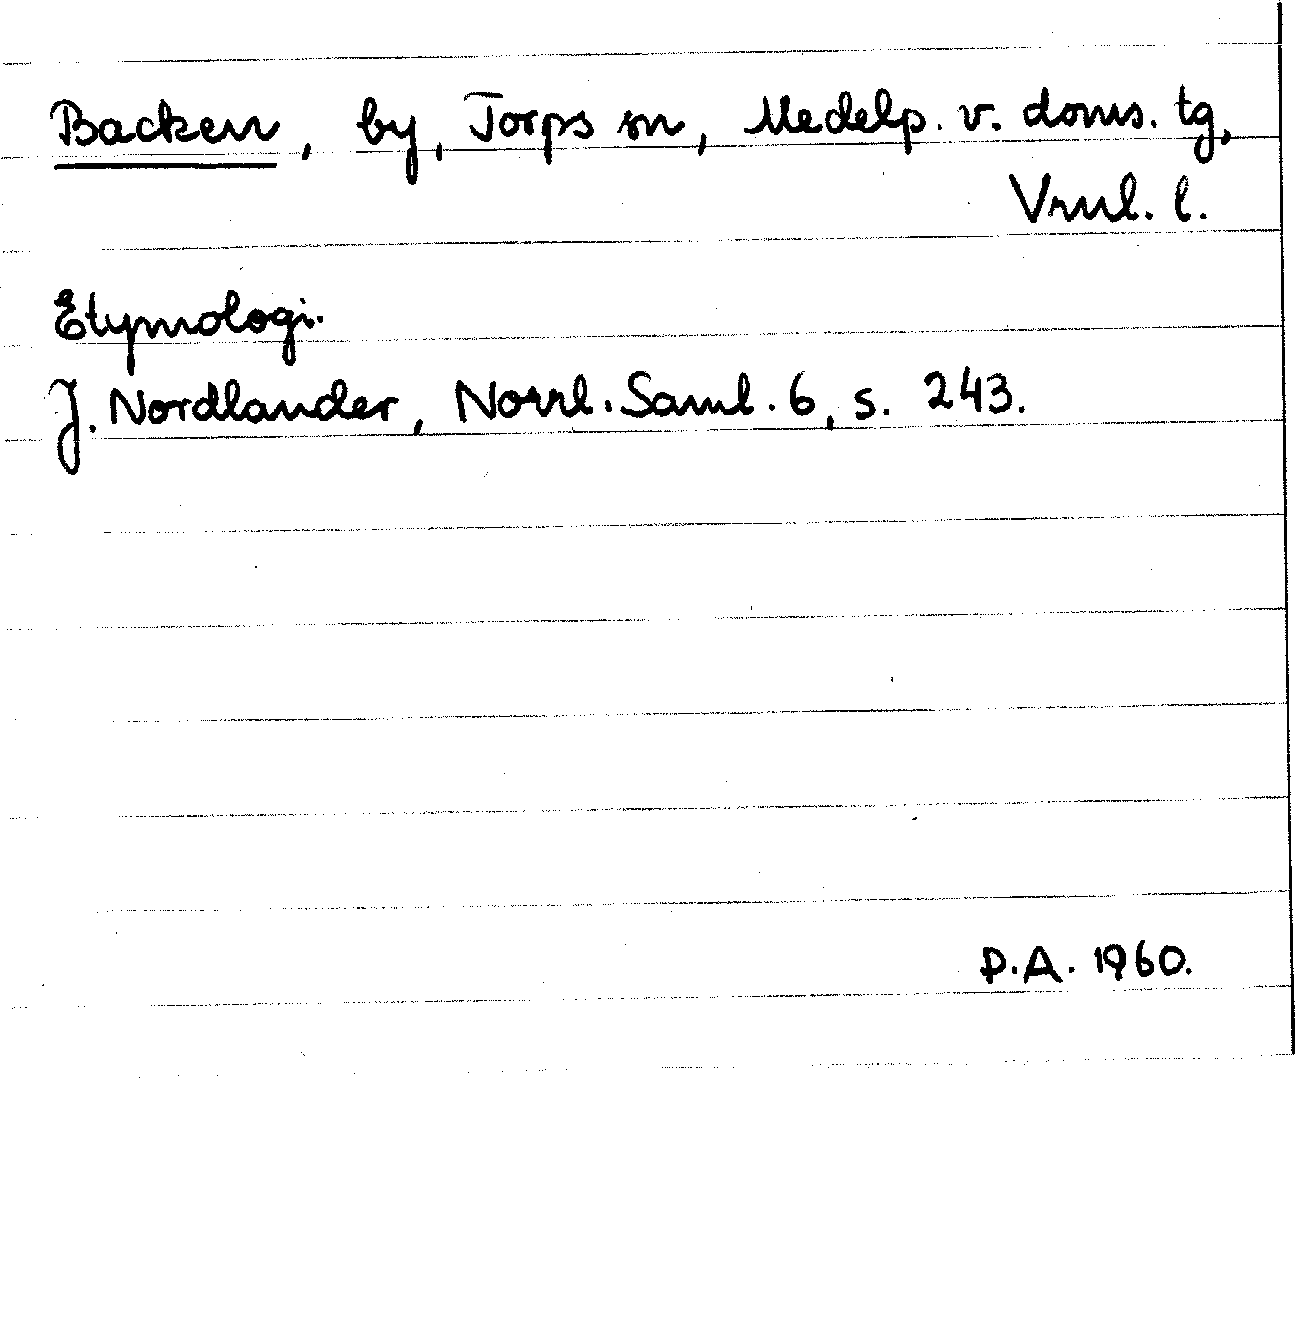 Backen, by, Torps sn, Medelp. v. doms. tg,
Vrnl. l.
Etymologi.
J. Nordlander, Norrl. Saml. 6, s. 243.
P.A. 1960.